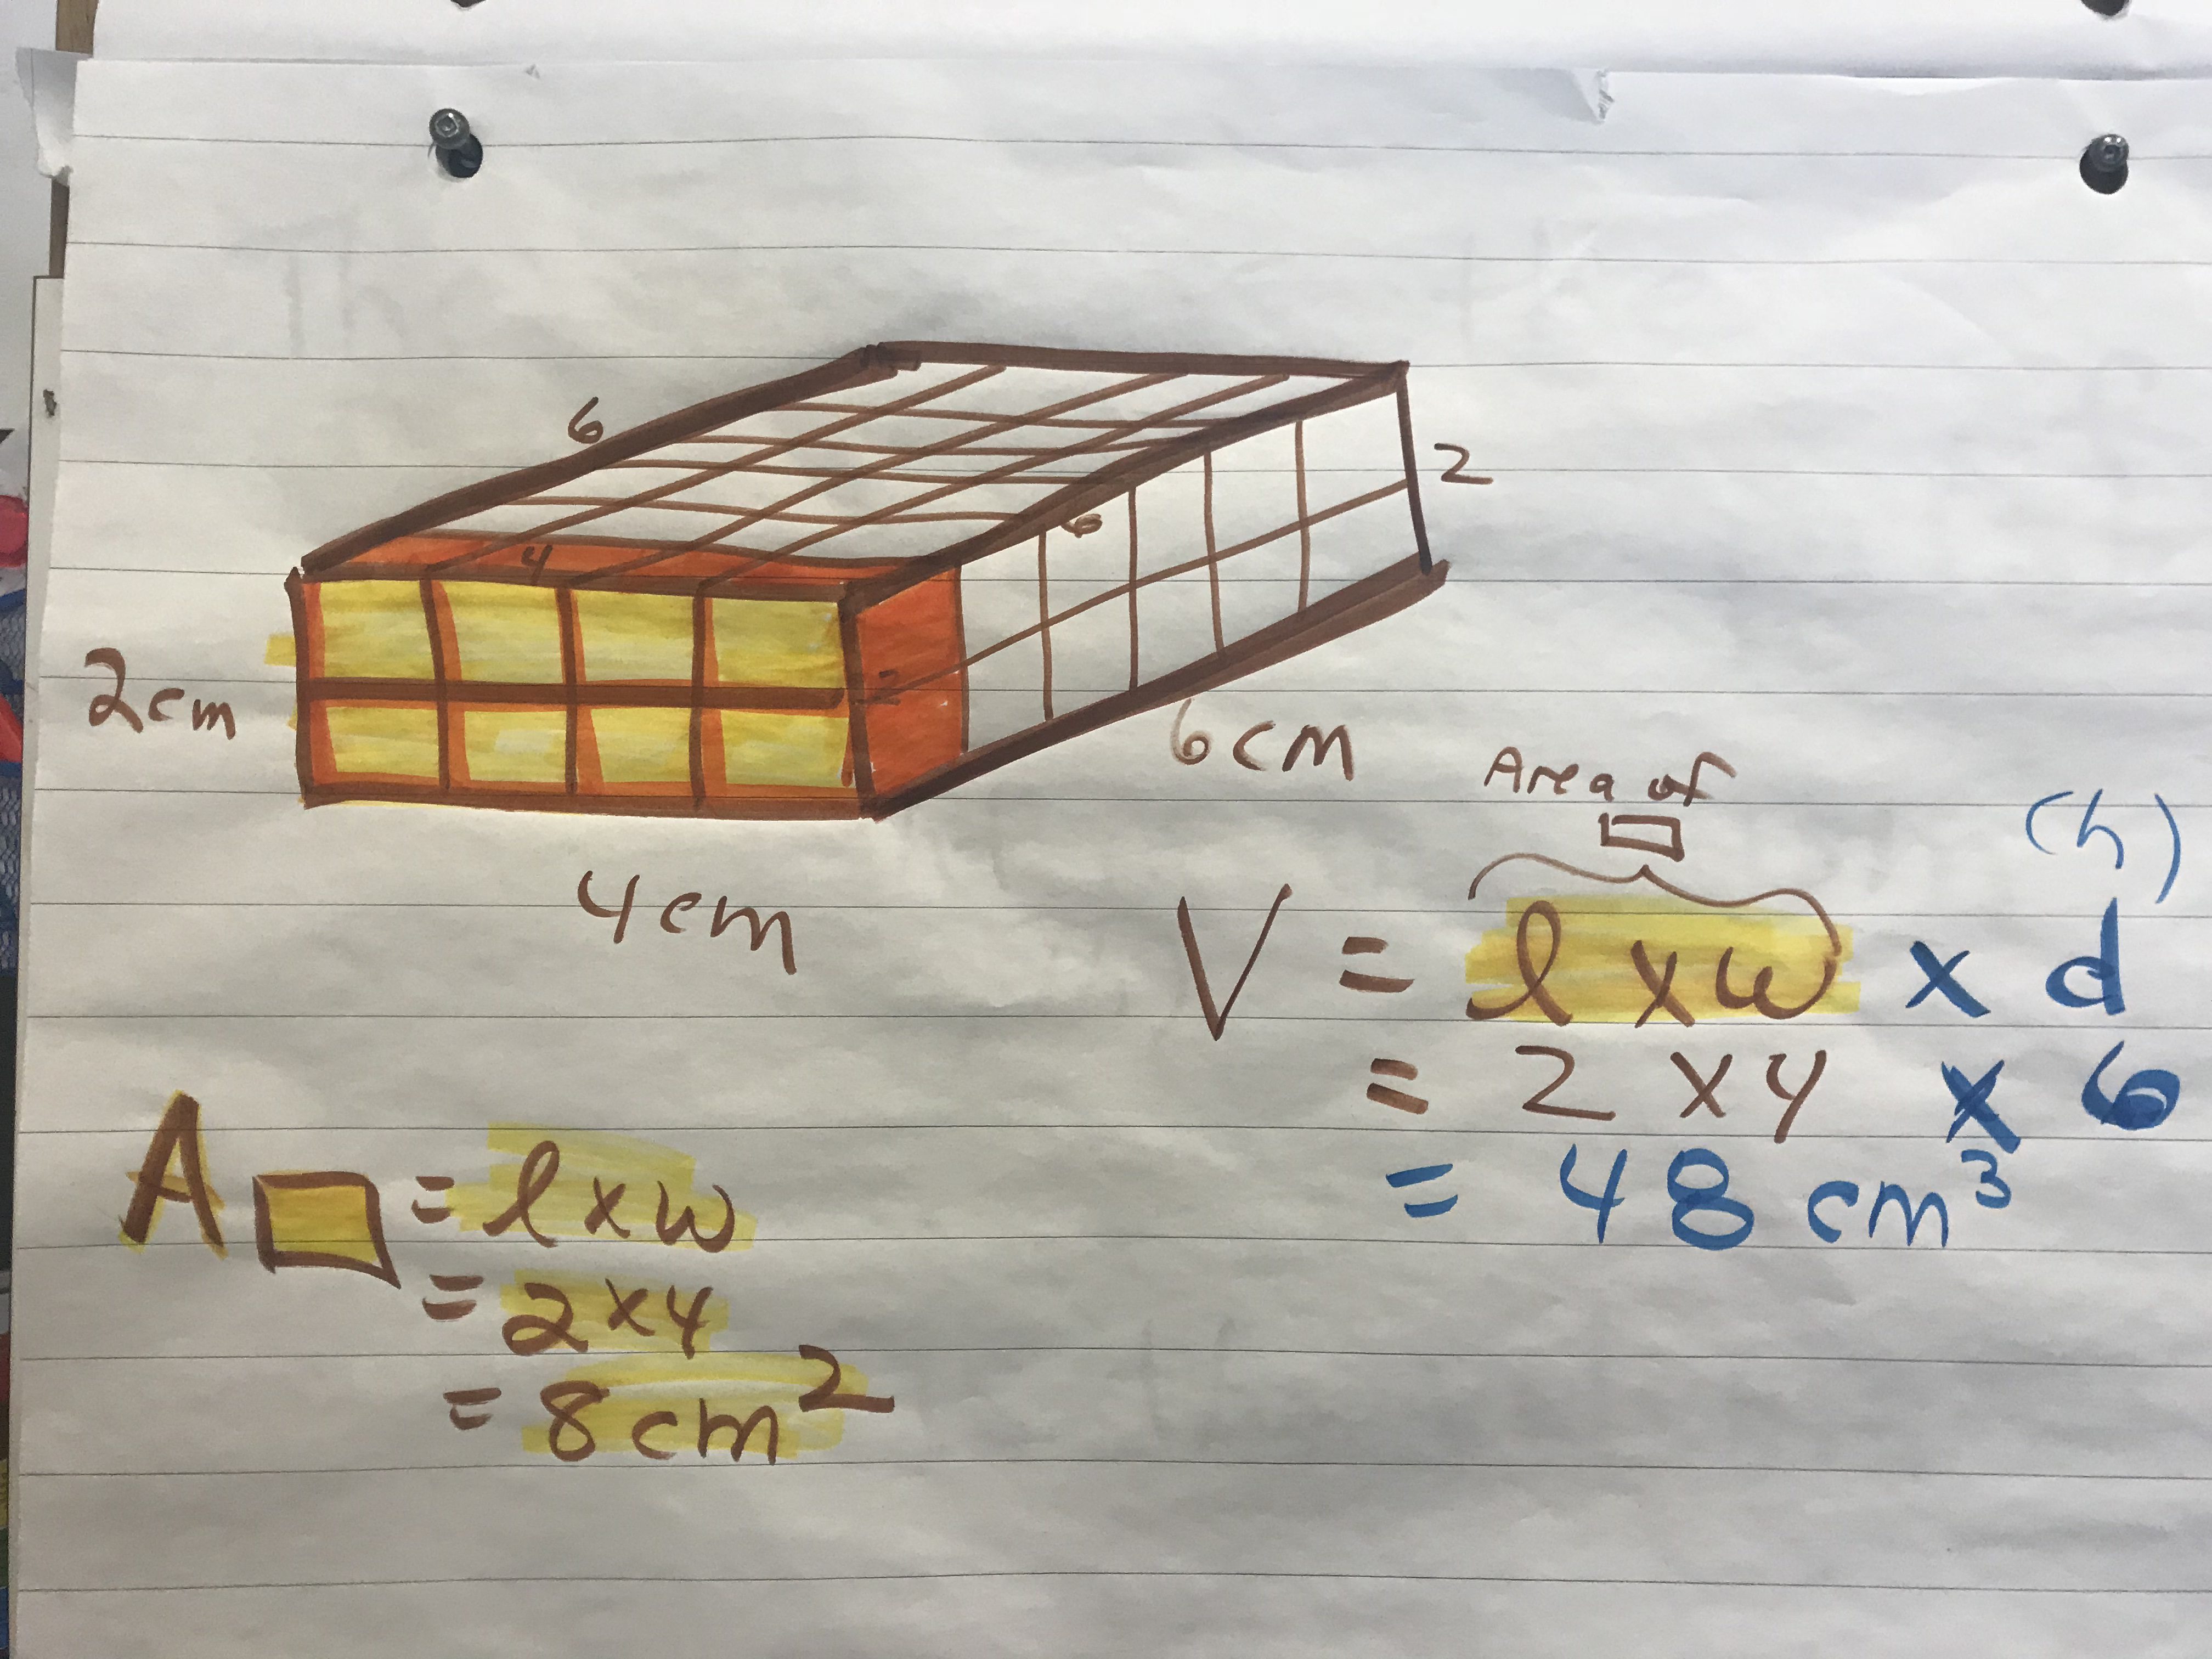 6
2
4
6
2
2cm
6cm
4cm
Area of
(h)
V = l x w x d
= 2 x 4 x 6
= 48 cm³
A = l x w
= 2 x 4
= 8cm²